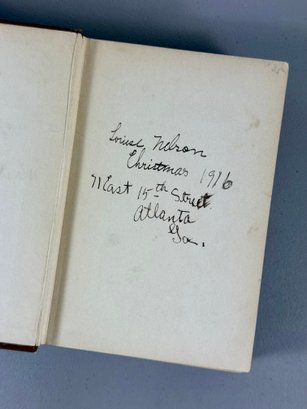 Louise Nelson
Christmas 1916
71 East 15th Street
Atlanta
Ga.